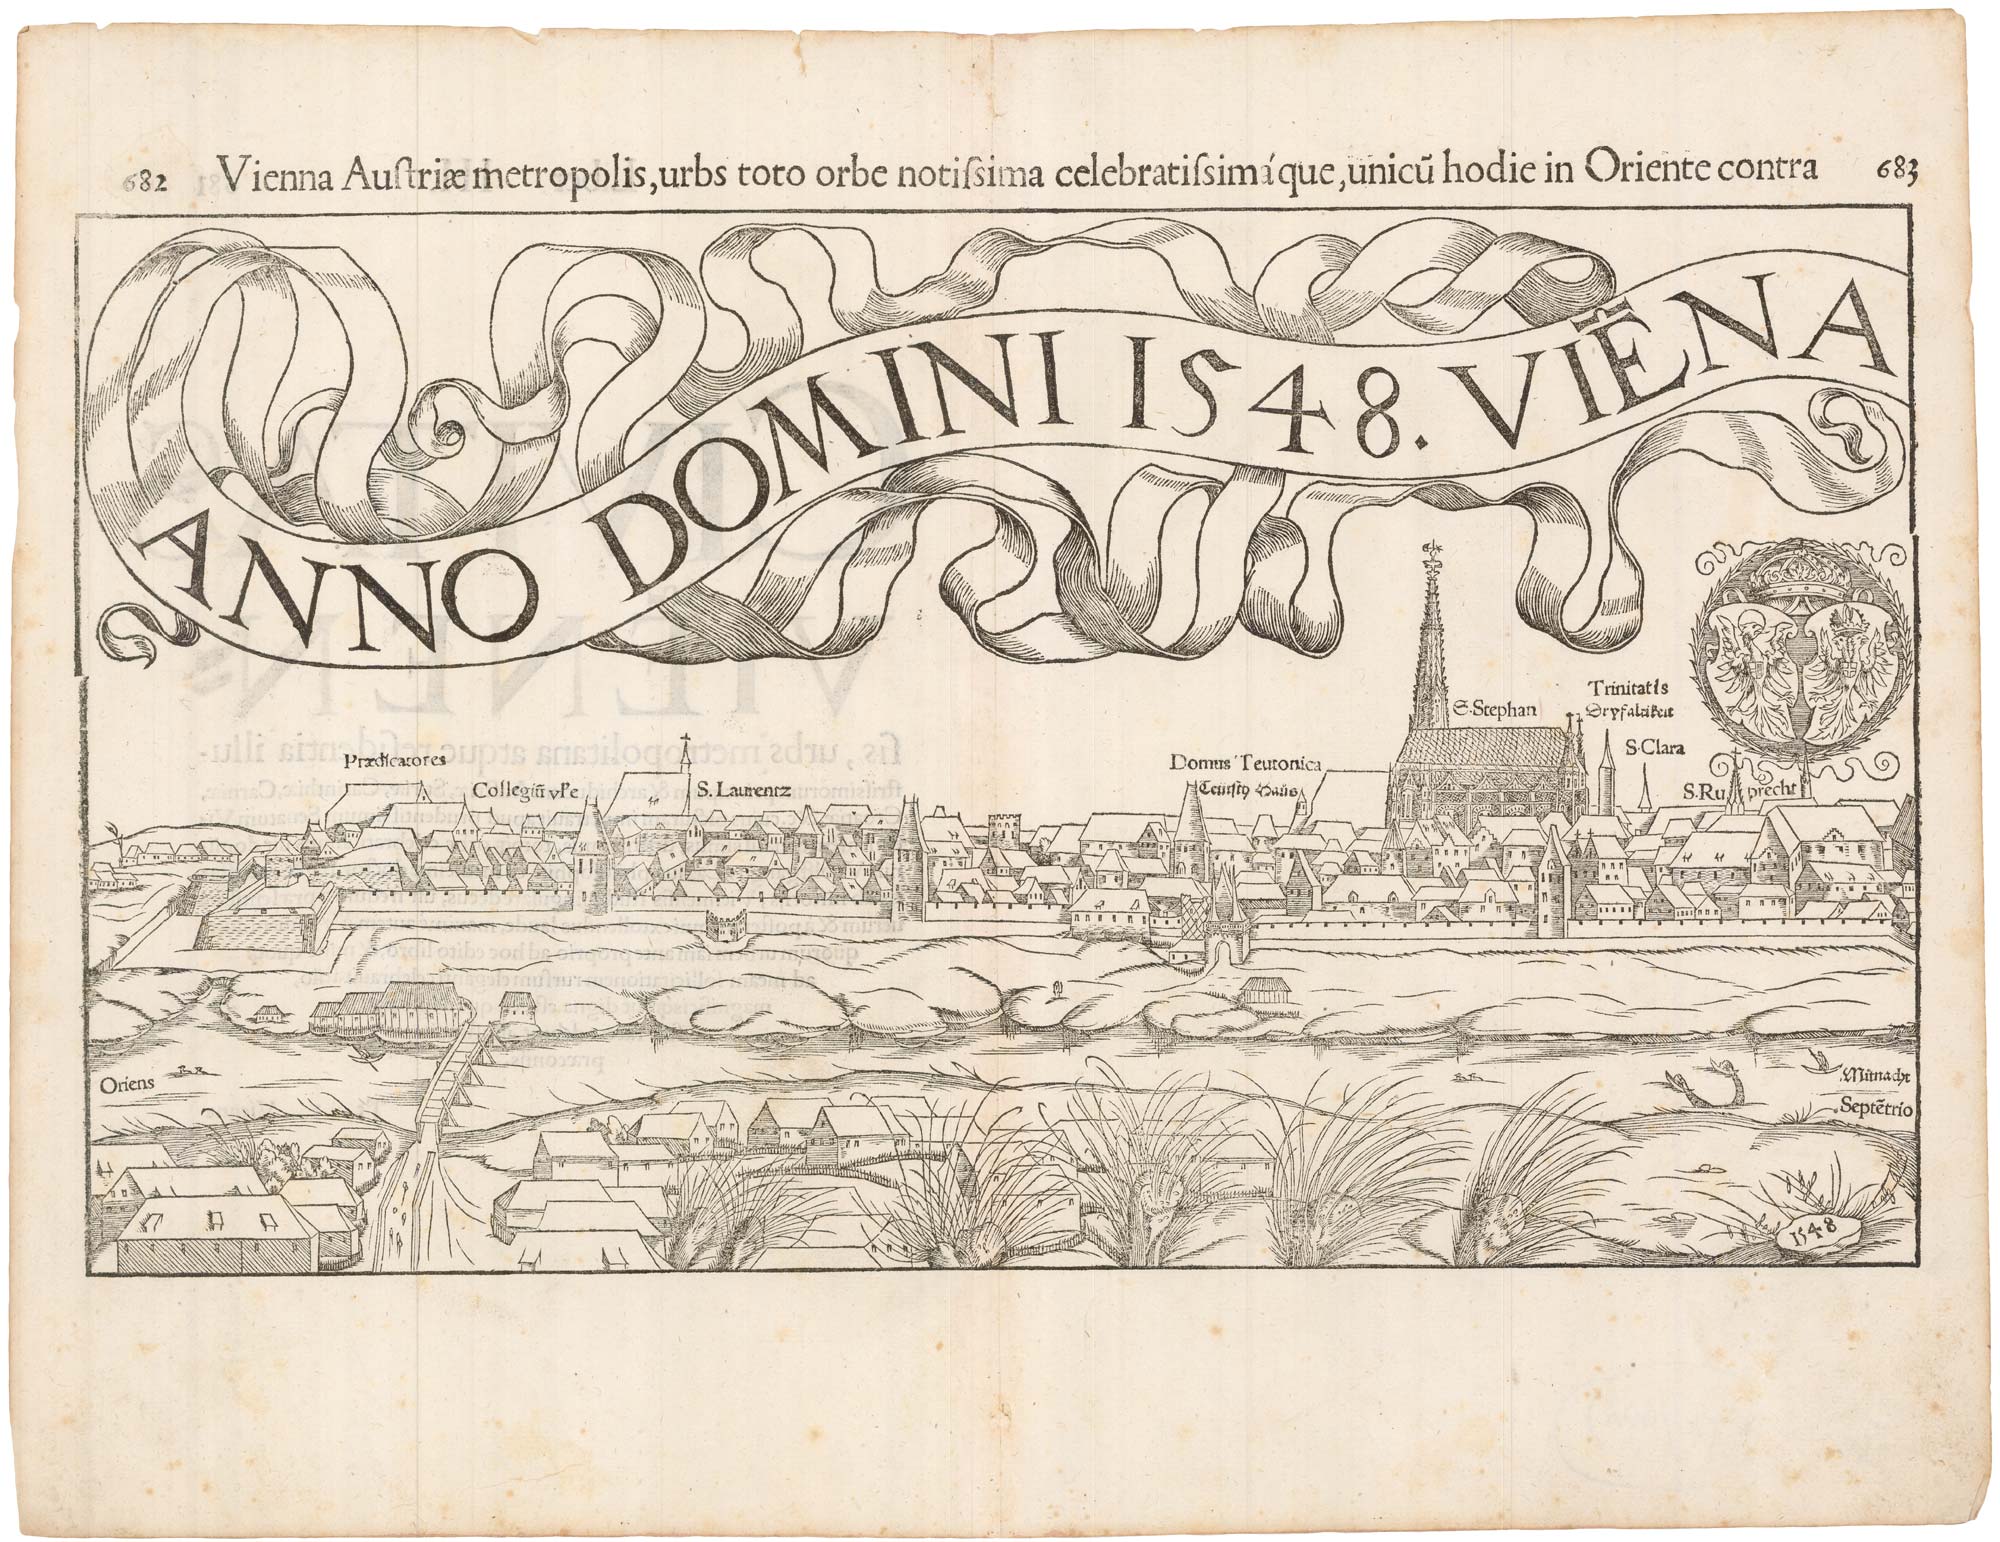 682 Vienna Auſtriæ metropolis, urbs toto orbe notiſsima celebratiſsimáque, unicũ hodie in Oriente contra 683
ANNO DOMINI 1548. VIẼNA
Trinitatis
S. Stephan
S. Clara
Prædicatores
Domus Teutonica
Collegiũ
S. Laurentz
Teutſch Haus
S. Ruprecht
Oriens
Mitnacht
Septẽtrio
1548